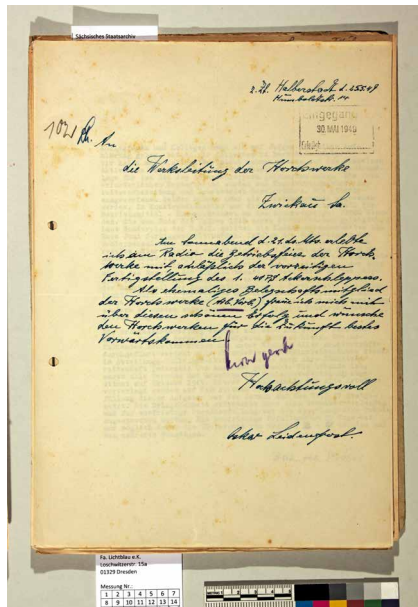 Sächsisches Staatsarchiv
z. Zt. Halberstadt d. 25.5.49
Humboldtstr. 14
Eingegang
30. MAI 1949
An
die Werksleitung der Horchwerke
Zwickau Sa.
Am Sonnabend d. 21. ds. Mts. erlebte
ich am Radio die Betriebsfeier der Horch
werke mit anläßlich der vorzeitigen
Fertigstellung des 1. Ackerschleppers.
Als ehemaliges Belegschaftsmitglied
der Horchwerke freue ich mich mit
über diesen schönen Erfolg und wünsche
den Horchwerken für die Zukunft bestes
Vorwärtskommen
Hochachtungsvoll
Oskar
Fa. Lichtblau e.K.
Loschwitzerstr. 15a
01329 Dresden
Messung Nr.:
1 2 3 4 5 6 7
8 9 10 11 12 13 14